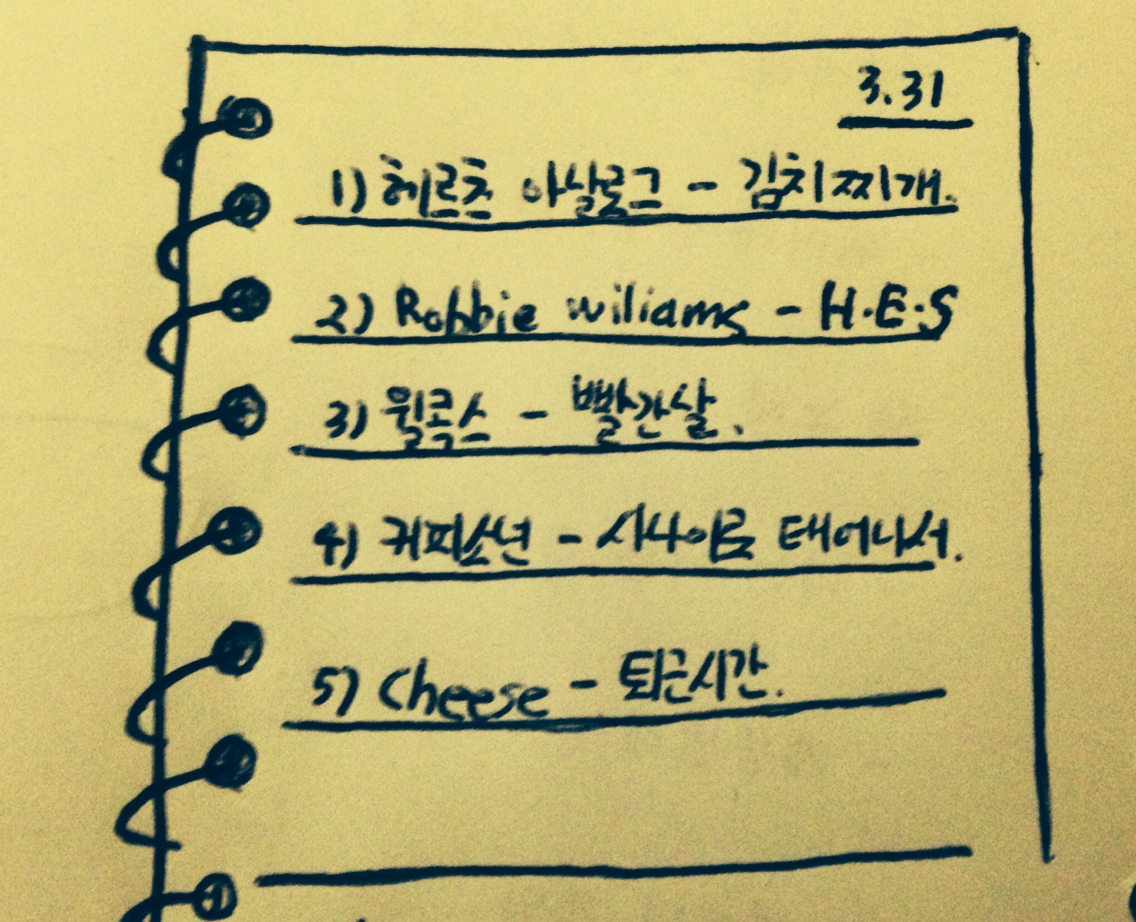 3.31
1) 헤르츠 아날로그 - 김치찌개.
2) Robbie wiliams - H.E.S
3) 윌콕스 - 빨간살.
4) 커피소년 - 사나이로 태어나서.
5) Cheese - 퇴근시간.